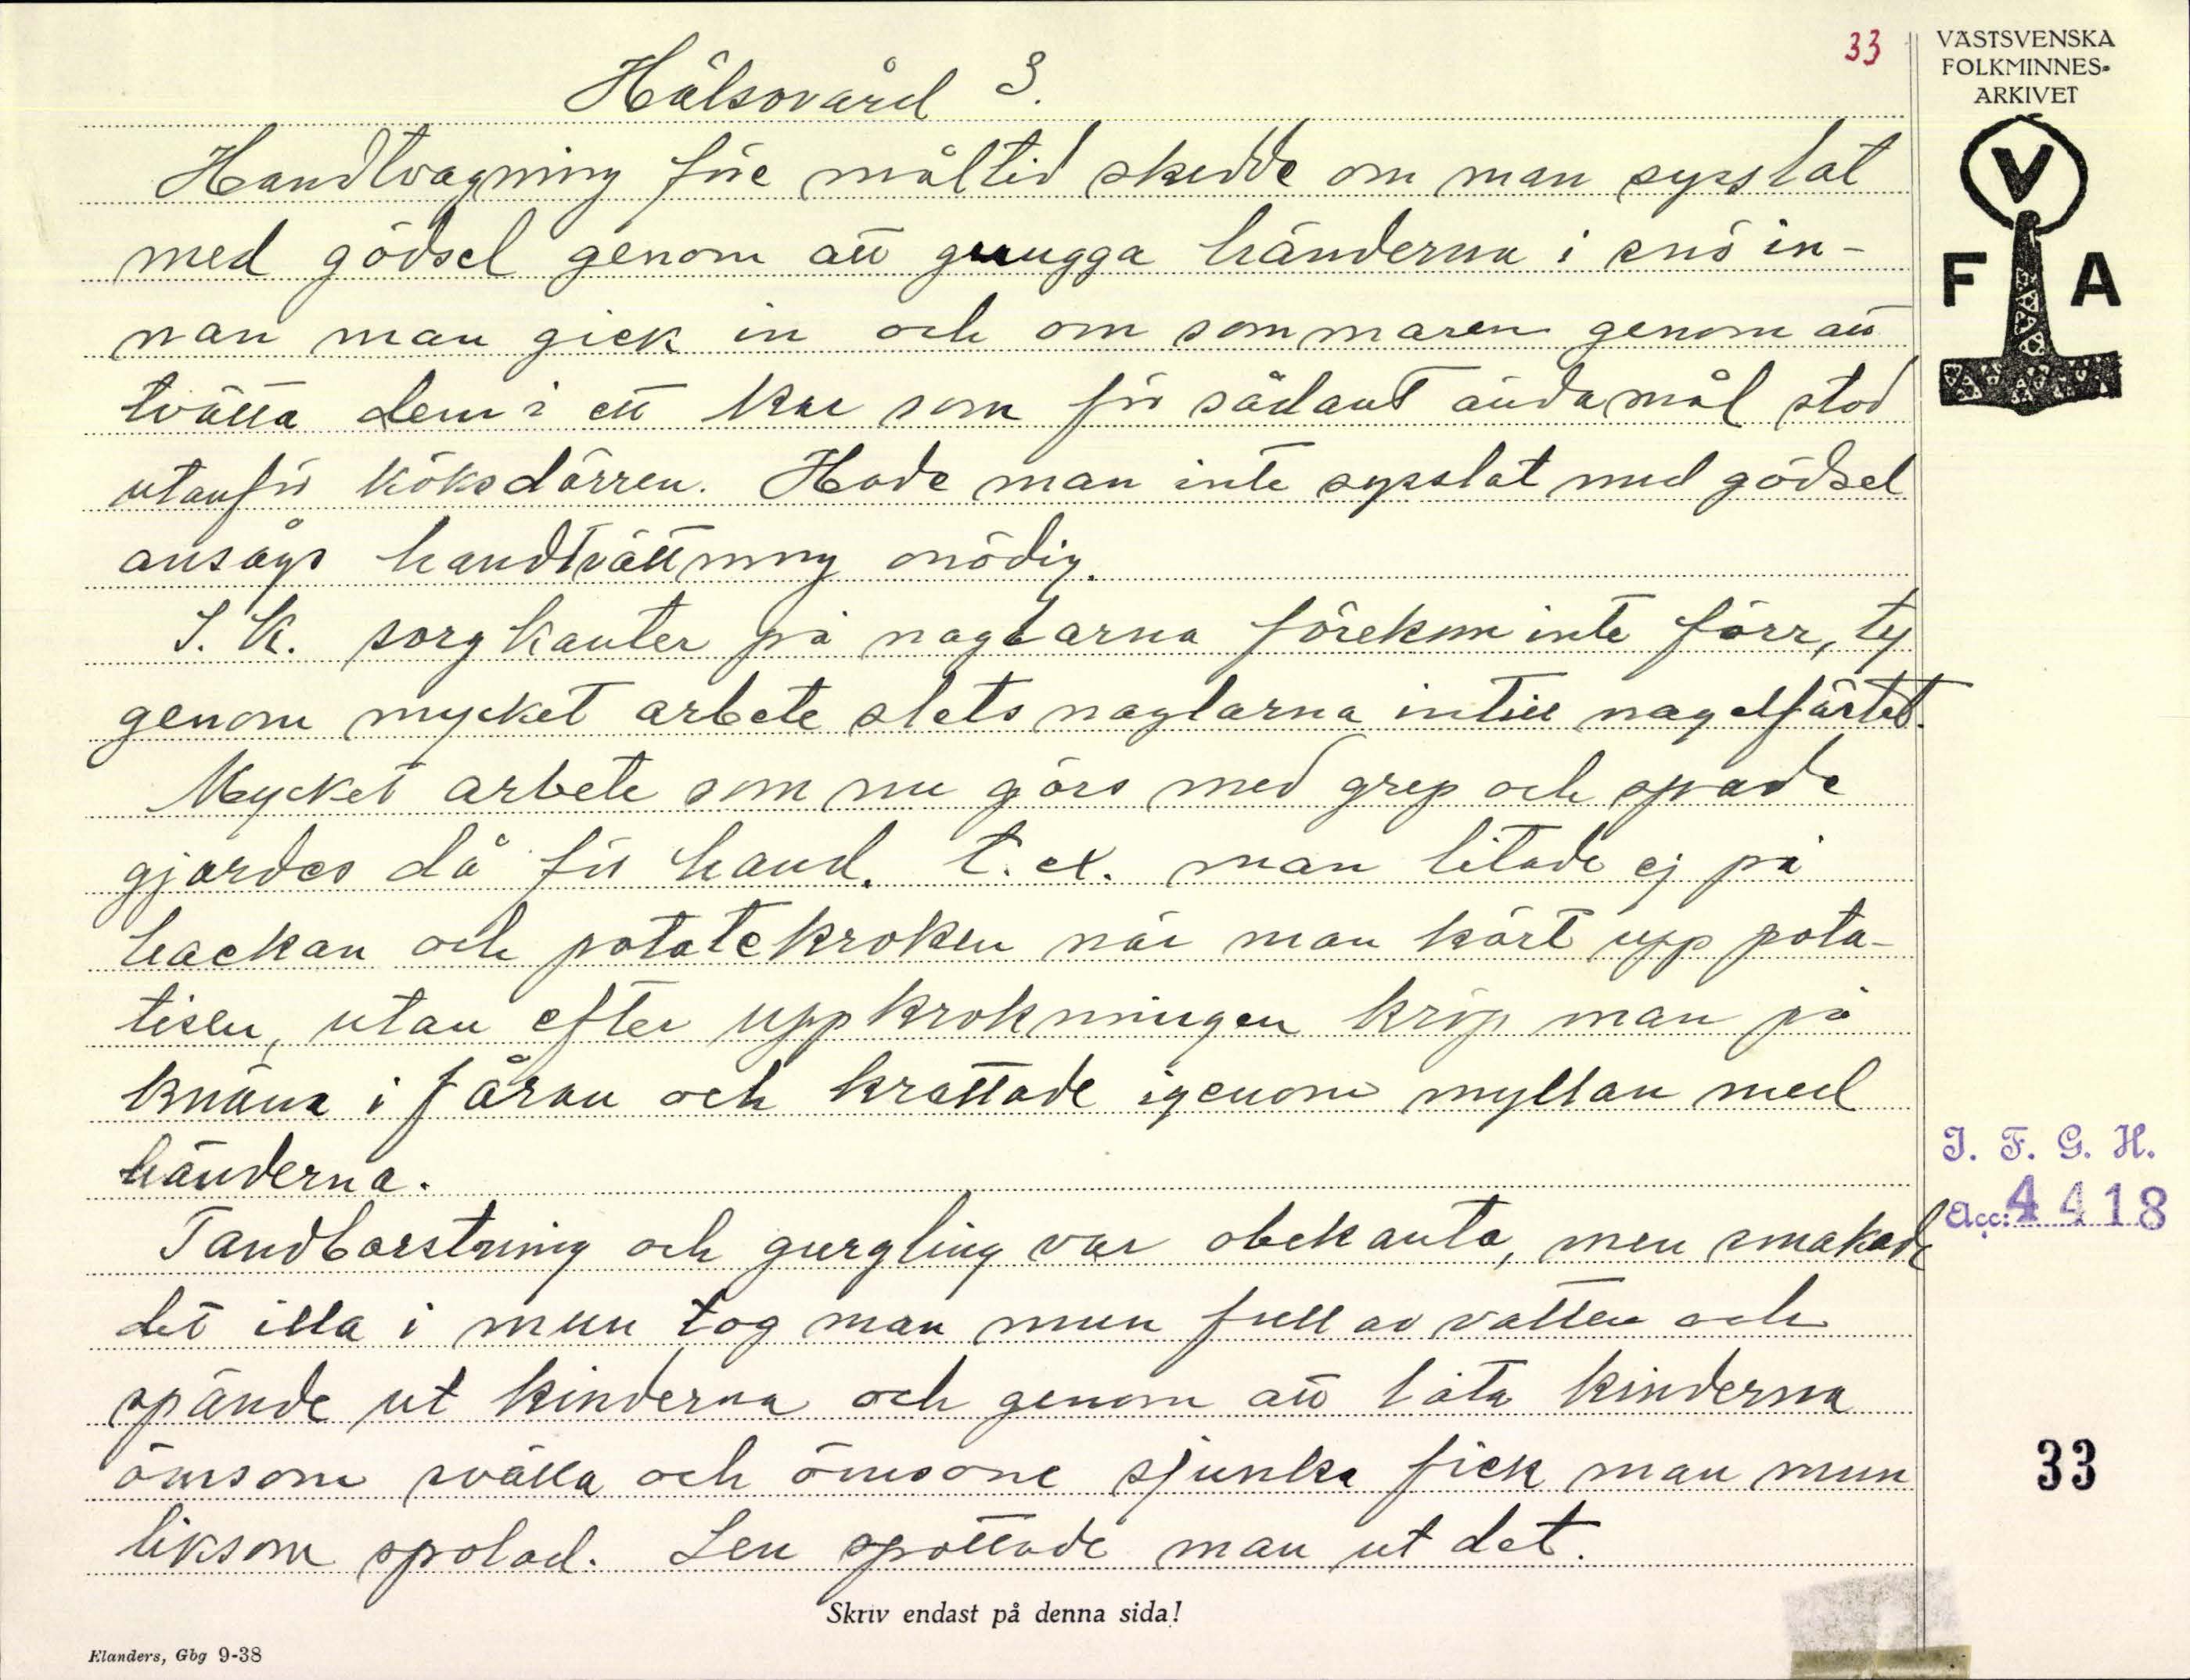 33
VÄSTSVENSKA
FOLKMINNES-
ARKIVET
V
F A
Hälsovård 3.
Handtvagning före måltid skedde om man sysslat
med gödsel genom att gnugga händerna i snö in-
nan man gick in och om sommaren genom att
tvätta dem i ett kar som för sådant ändamål stod
utanför köksdörren. Hade man inte sysslat med gödsel
ansågs handtvättning onödig.
S. k. sorgkanter på naglarna förekom inte förr, ty
genom mycket arbete slets naglarna intill nagelfästet.
Mycket arbete som nu görs med grep och spade
gjordes då för hand. t. ex. man litade ej på
hackan och potatekroken när man kört upp pota-
tisen, utan efter uppkrokningen kröp man på
knäna i fåran och krattade igenom myllan med
händerna.
Tandborstning och gurgling var obekanta, men smakade
det illa i mun tog man mun full av vatten och
spände ut kinderna och genom att låta kinderna
ömsom svälla och ömsone sjunka fick man mun
liksom spolad. Sen spottade man ut det.
I. F. G. H.
Acc: 4418
33
Skriv endast på denna sida!
Elanders, Gbg 9-38